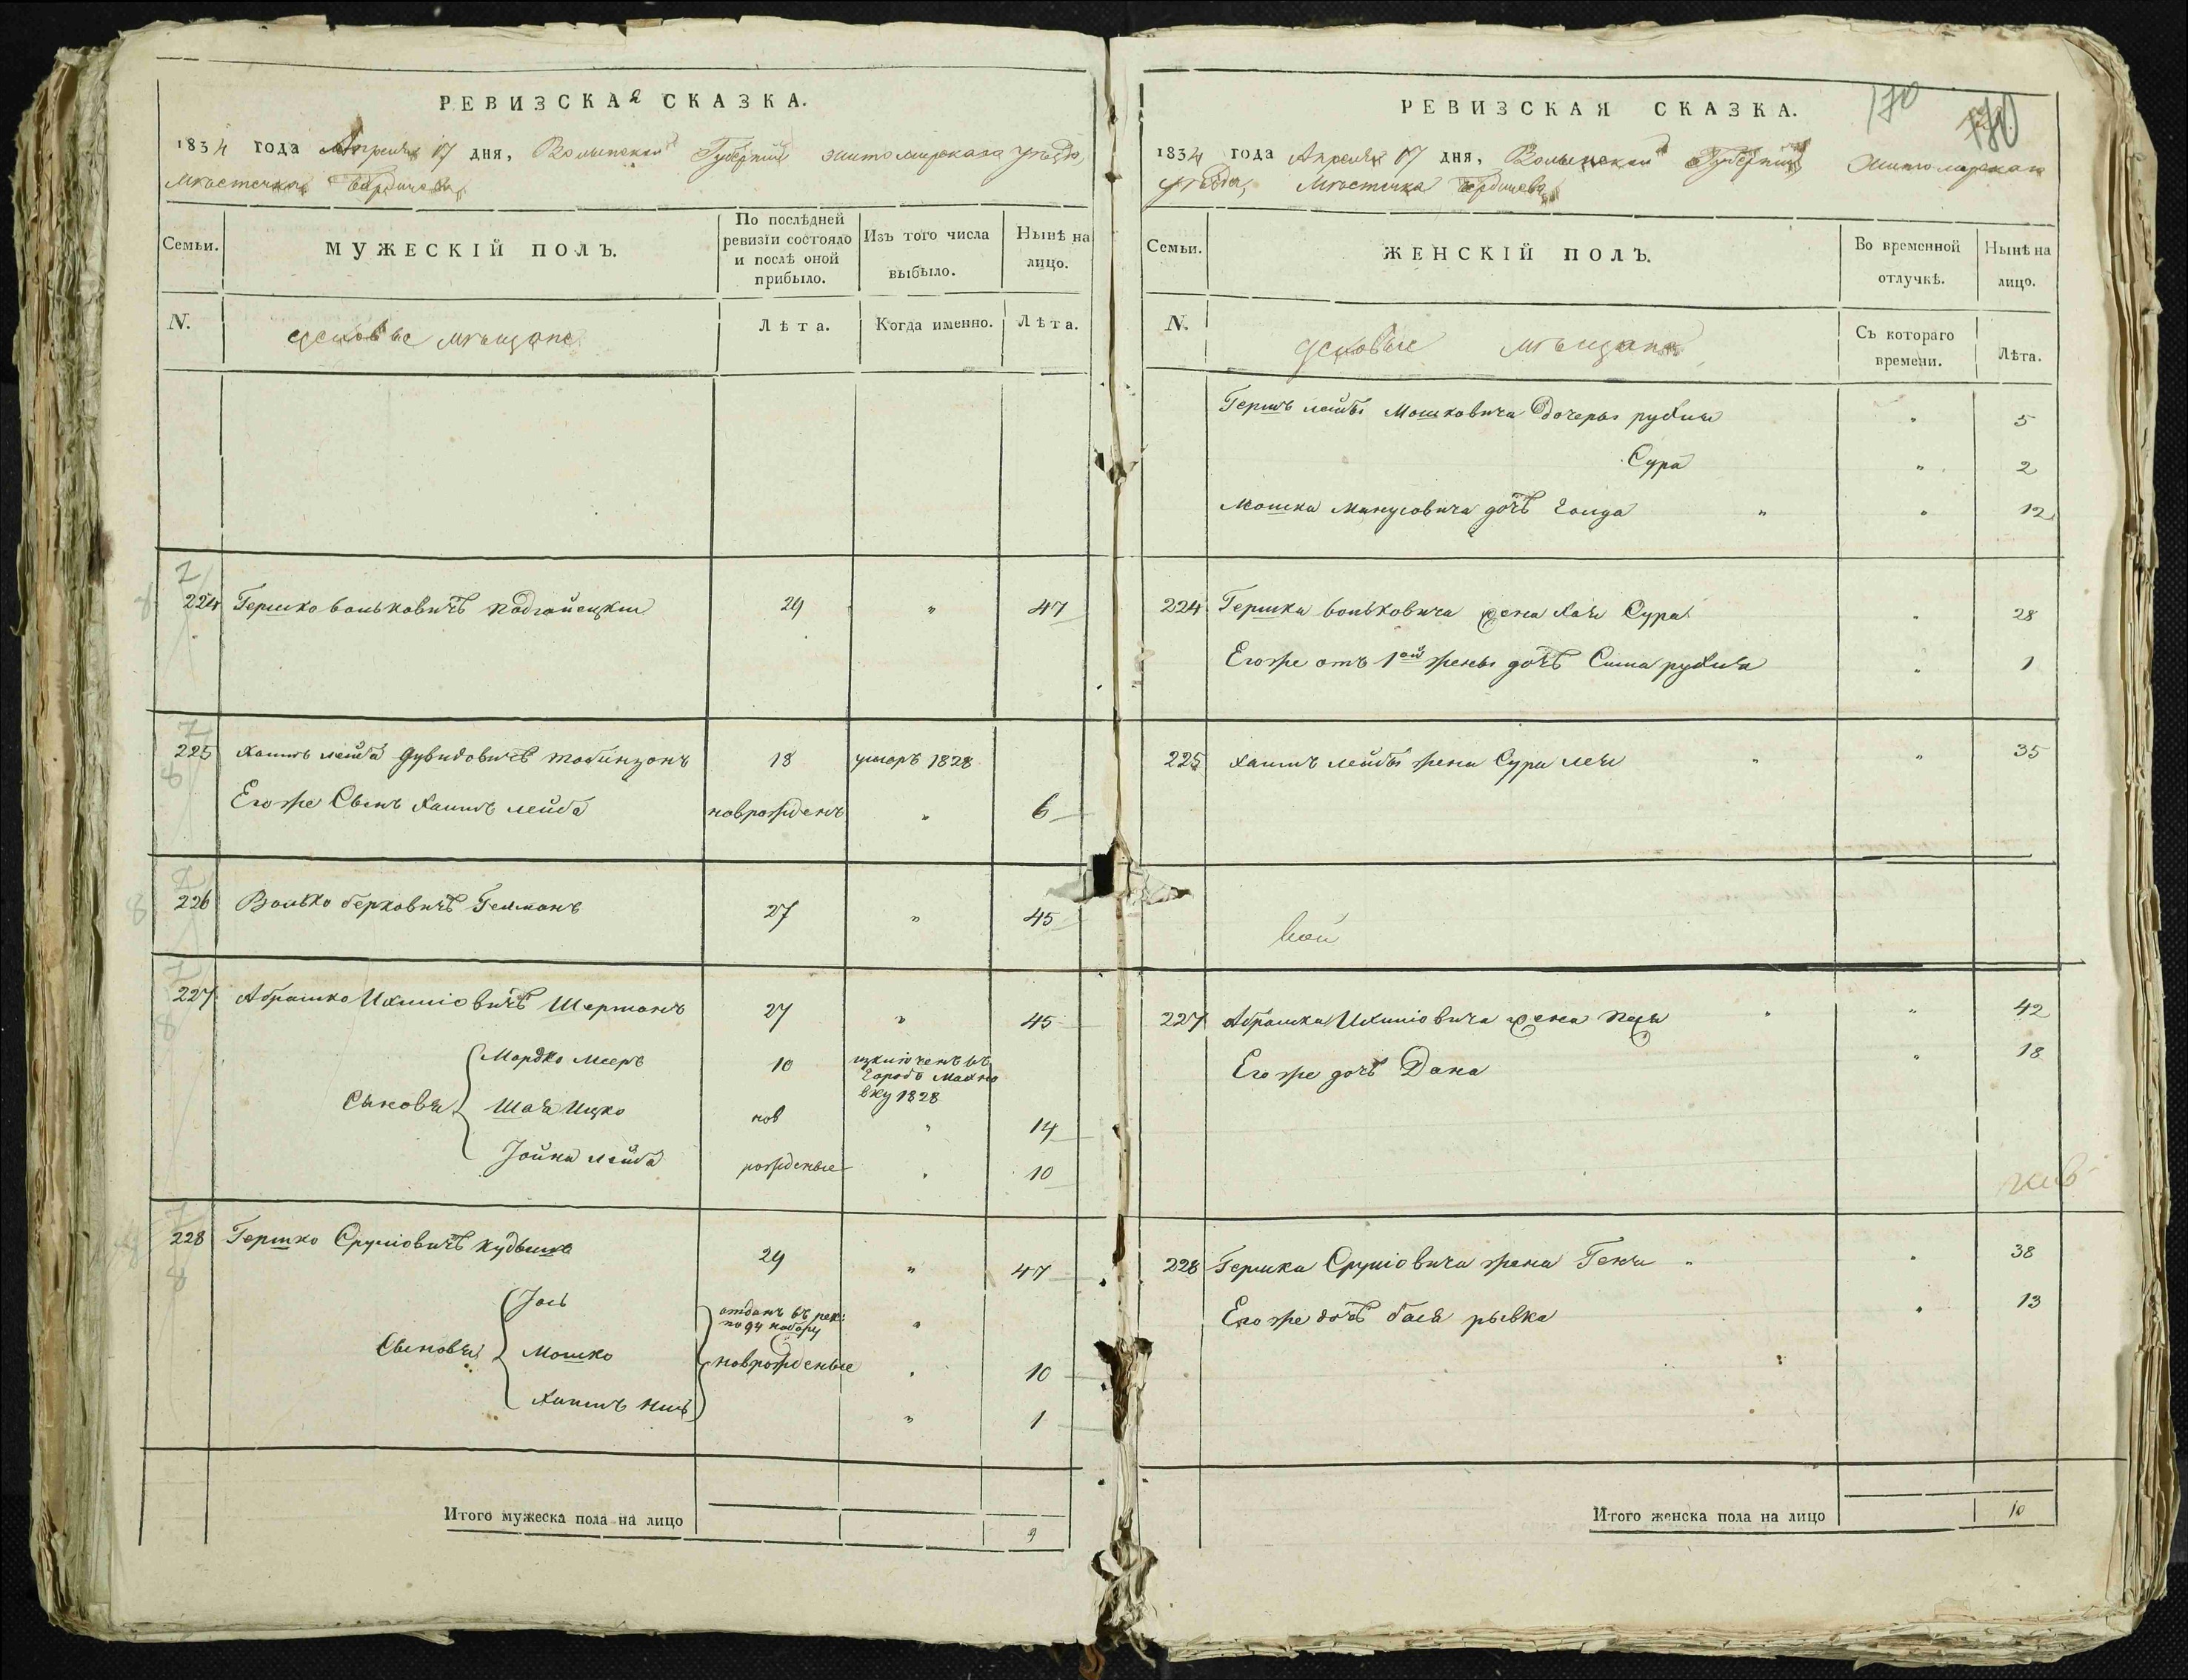 РЕВИЗСКАЯ СКАЗКА.
1834 года Апреля 17 дня, Волынской Губернии Житомирскаго уезда,
Местечка Бердичева
Семьи.
МУЖЕСКІЙ ПОЛЪ.
По послѣдней ревизіи состояло и послѣ оной прибыло.
Изъ того числа выбыло.
Нынѣ на лицо.
N.
мѣщане
Лѣта.
Когда именно.
Лѣта.
224 Гершко Волькович Подгаецкий 29 " 47
225 Хаимъ лейба Дувидовичъ 18 умеръ 1828
Его же Сынъ Хаимъ лейба новорожденъ " 6
226 Волько берковичъ Гелманъ 27 " 45
227 Абрашко Ихилiовичъ Шерманъ 27 " 45
Сыновья
Мордко Мееръ 10 изключенъ въ городъ Махновку 1828
Шая Ицко нов " 14
Іойна лейба рожденые " 10
228 Гершко Сруліовичъ Кудышъ 29 " 47
Сыновья
Іось отданъ въ рек: по 94 набору "
Мошко новрожденые " 10
Хаимъ " 1
Итого мужеска пола на лицо 9
РЕВИЗСКАЯ СКАЗКА.
170
170
1834 года Апреля 17 дня, Волынской Губернии Житомирскаго
уезда, Местечка Бердичева
Семьи.
ЖЕНСКІЙ ПОЛЪ.
Во временной отлучкѣ.
Нынѣ на лицо.
N.
мѣщане
Съ котораго времени.
Лѣта.
Гершъ лейбы Мошковича дочеры рухля " 5
Сура " 2
Мошка Манусовича дочъ Голда " " 12
224 Гершка Вольковича жена Хая Сура " 28
Его же отъ 1ой жены дочъ Сима рухля " 1
225 Хаимъ лейбы жена Сура лея " " 35
227 Абрашка Ихилiовича жена Песя " " 42
Его же дочъ Дана " 18
228 Гершка Сруліовича жена Геня " " 38
Его же дочъ бася рывка " 13
Итого женска пола на лицо 10